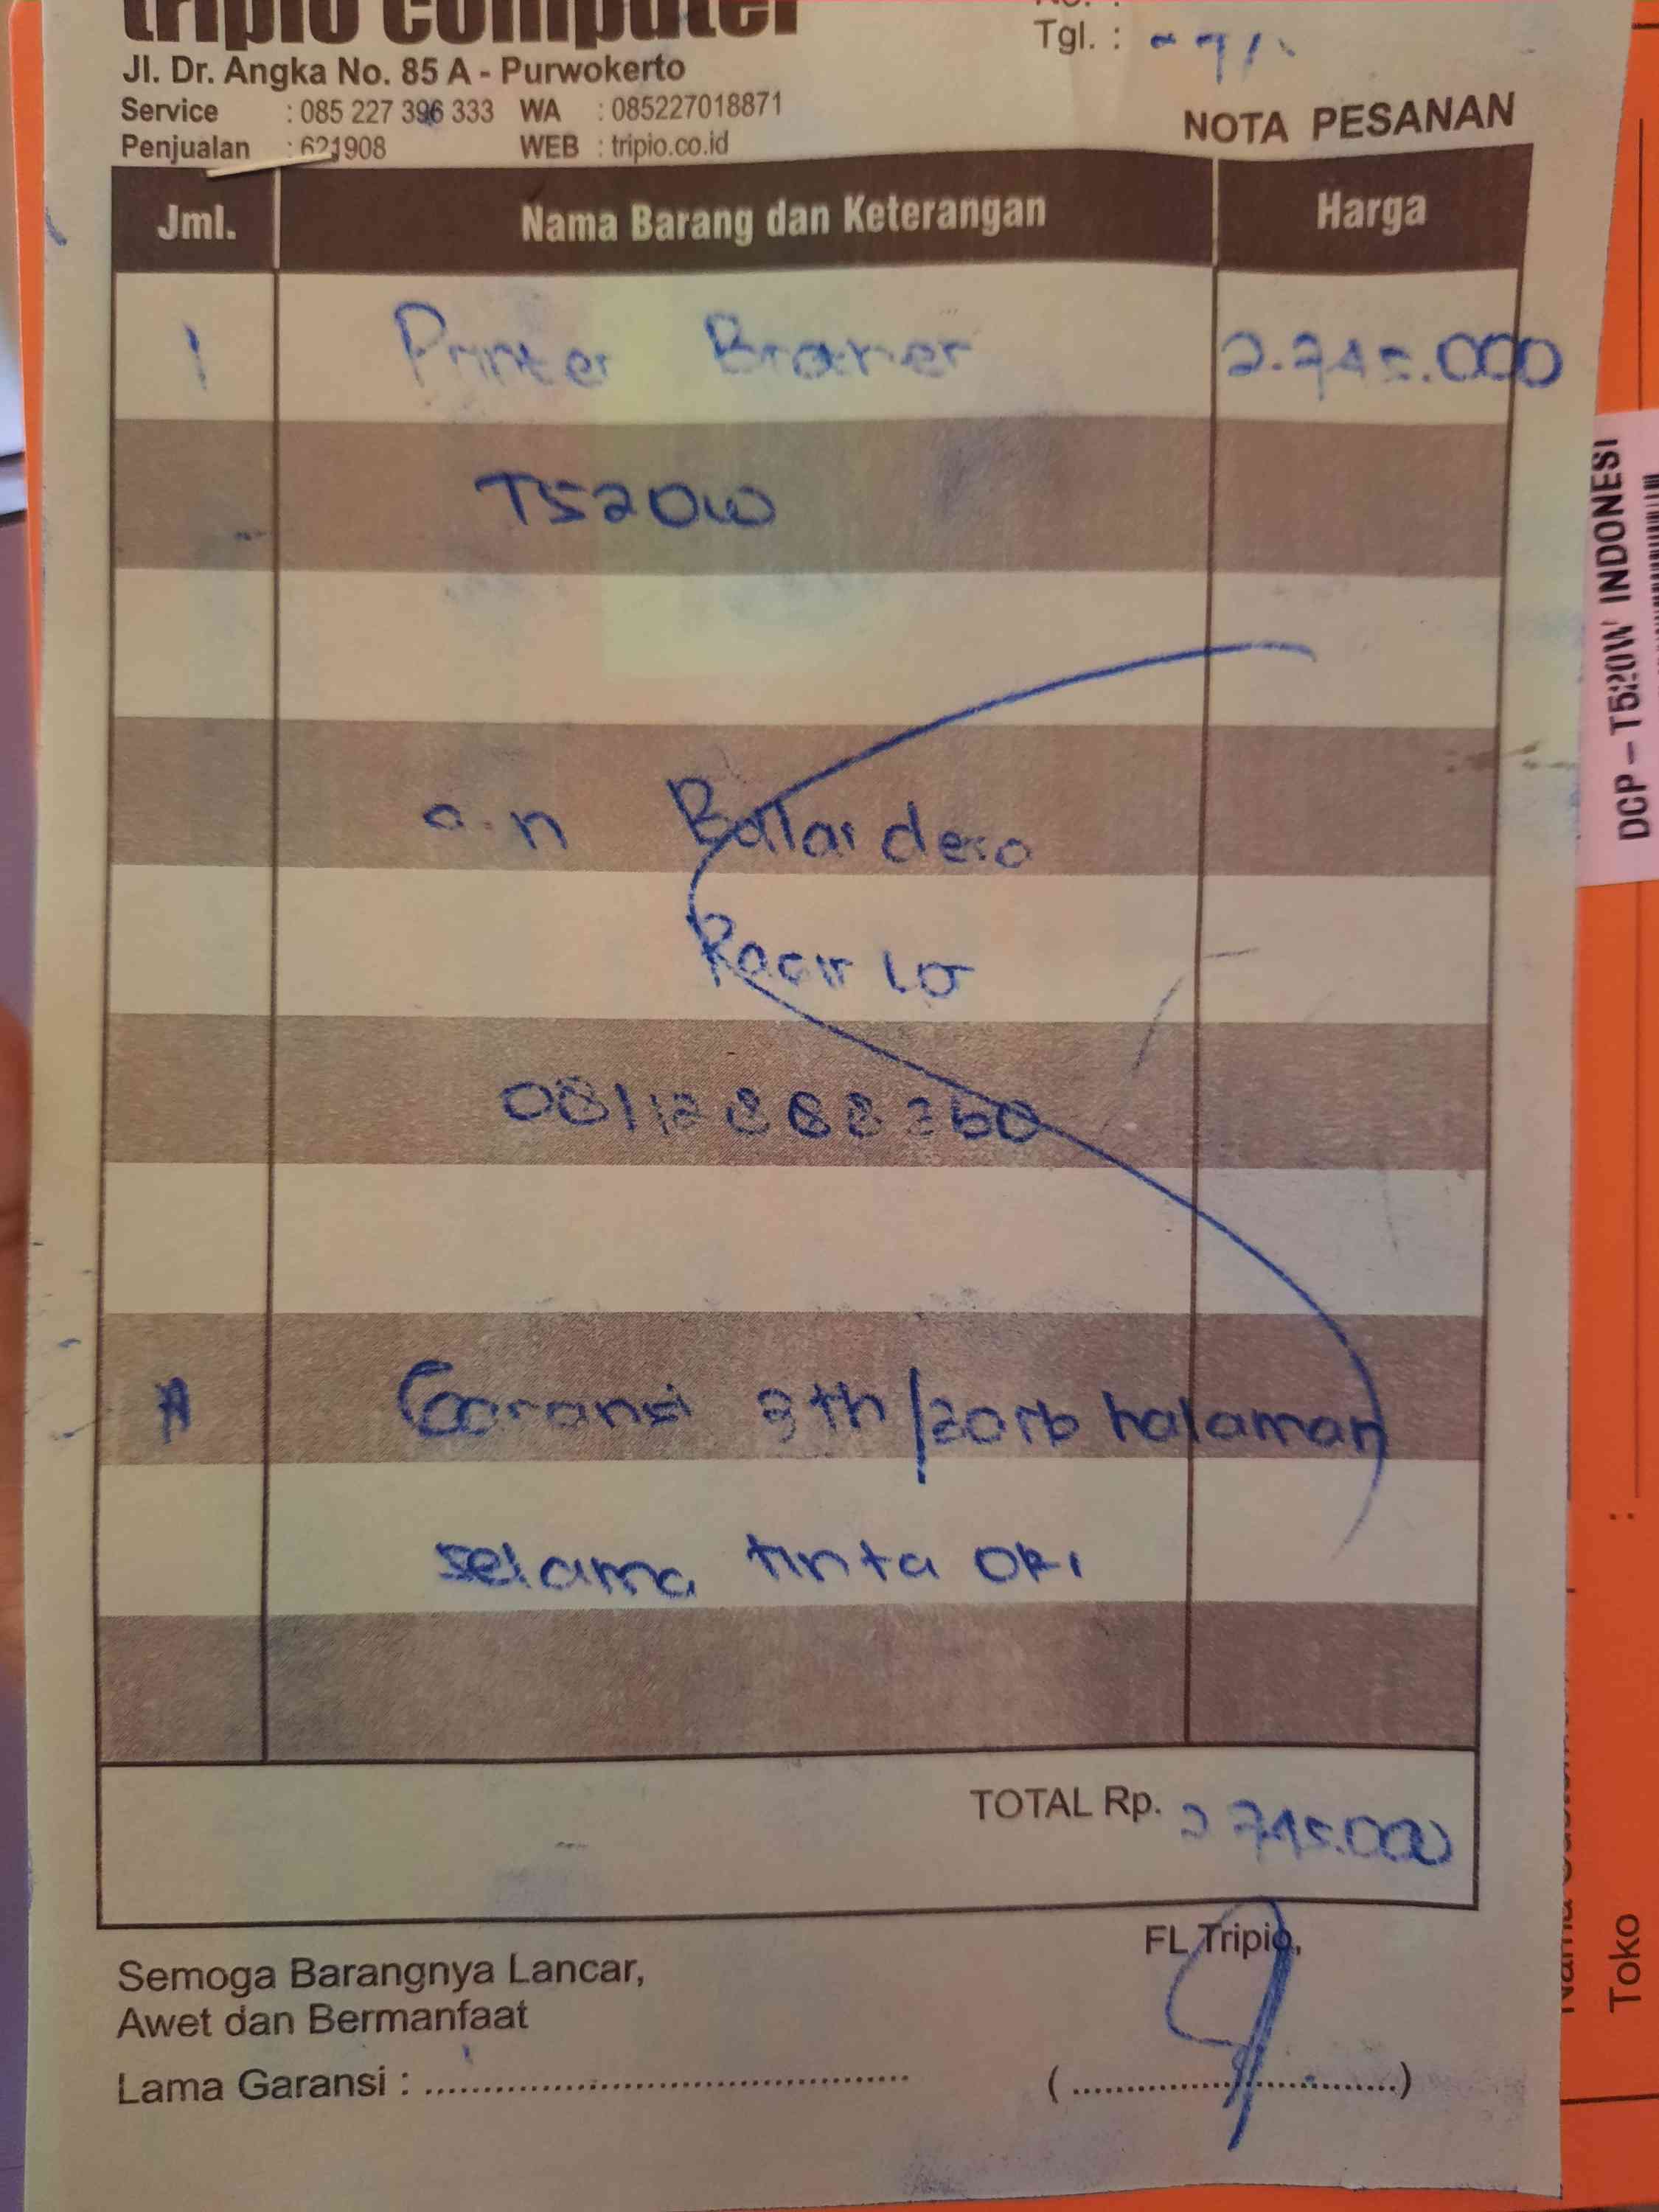 tripio computer
No. :
Tgl. :
Jl. Dr. Angka No. 85 A - Purwokerto
Service : 085 227 396 333 WA : 085227018871
Penjualan : 621908 WEB : tripio.co.id
NOTA PESANAN
Jml. Nama Barang dan Keterangan Harga
1 Printer Broter 2.745.000
T520W
a.n Ballai deso
08112888360
Garansi 3th/20rb halaman
selama tinta ORI
TOTAL Rp. 2.745.000
FL Tripio,
Semoga Barangnya Lancar,
Awet dan Bermanfaat
Lama Garansi : ........................................
(................................)
DCP-T520W INDONESI
Toko
: